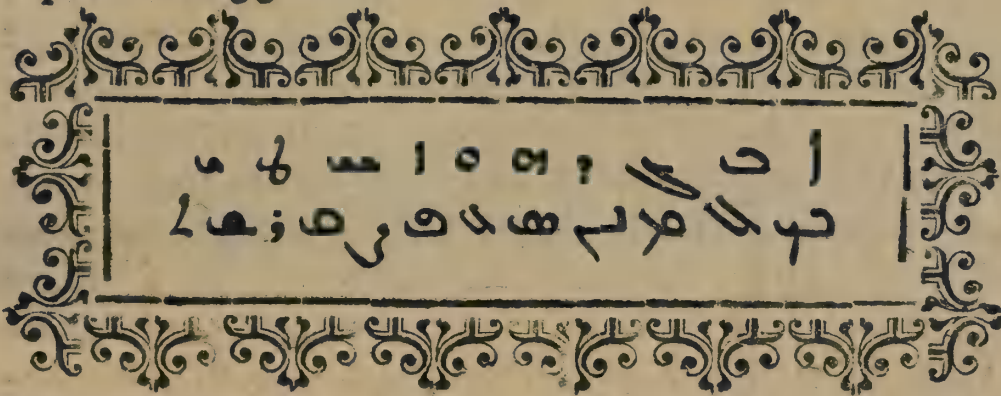 ܐ ܒ ܓ ܕ ܗ ܘ ܙ ܚ ܛ ܝ
ܟ ܠ ܡ ܢ ܣ ܥ ܦ ܨ ܩ ܪ ܫ ܬ